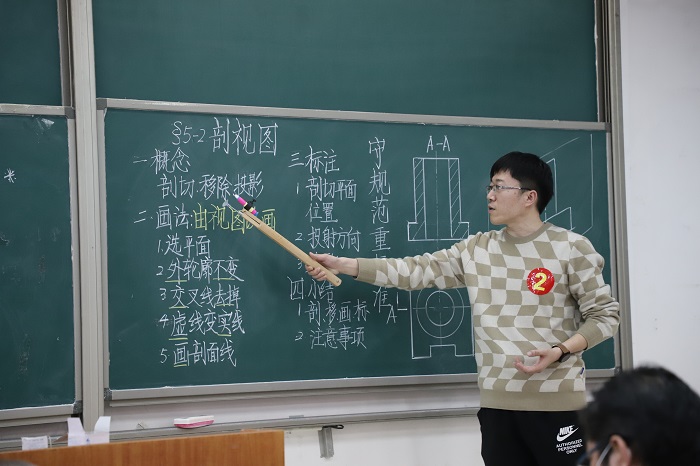 §5-2 剖视图
一 概念
剖切.移除.投影
二 画法:由视图
1 选平面
2 外轮廓不变
3 交叉线去掉
4 虚线变实线
5 画剖面线
三 标注
1 剖切平面
位置
2 投射方向
四 小结
1 剖移画标
2 注意事项
守规范重
准
A-A
A
2
NIKE
AUTHORIZED
PERSONNEL
ONLY